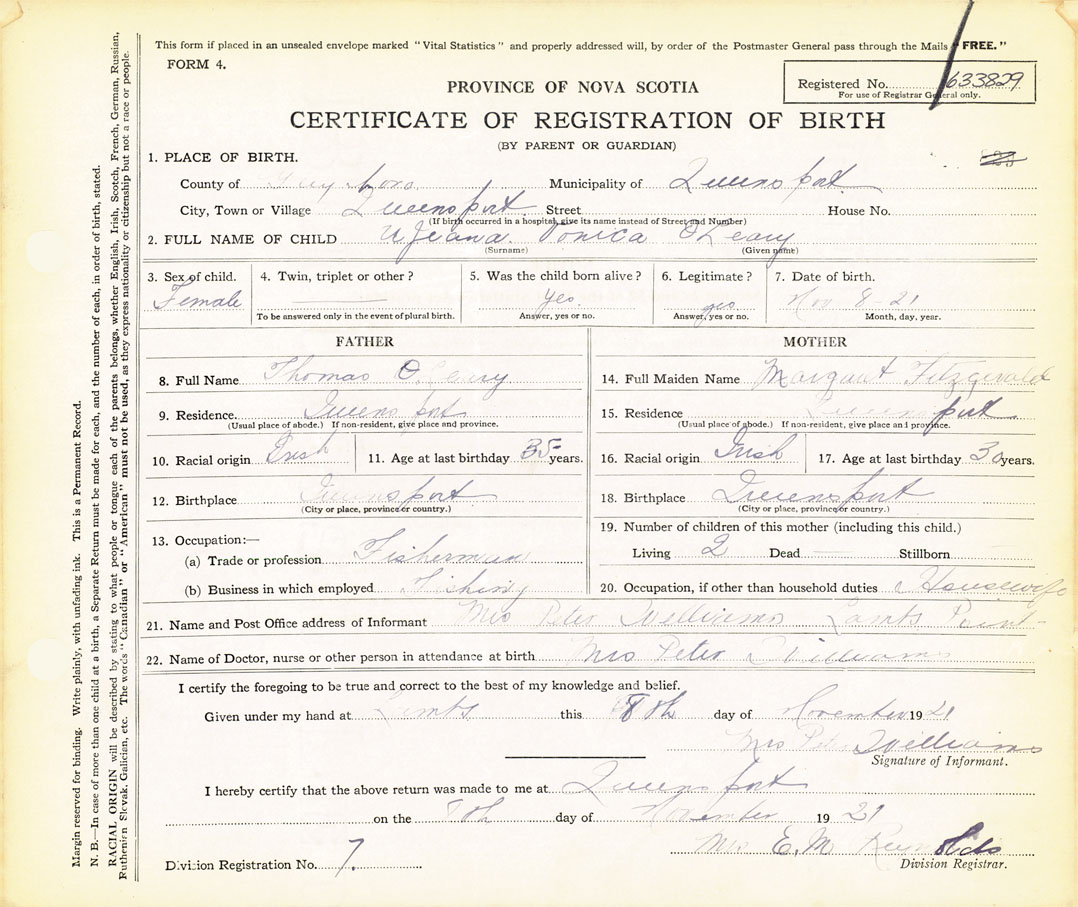 This form if placed in an unsealed envelope marked "Vital Statistics" and properly addressed will, by order of the Postmaster General pass through the Mails "FREE."
FORM 4.
Registered No. 633829
For use of Registrar General only.
PROVINCE OF NOVA SCOTIA
CERTIFICATE OF REGISTRATION OF BIRTH
(BY PARENT OR GUARDIAN)
1. PLACE OF BIRTH.
County of Municipality of Queensport
City, Town or Village Queensport Street House No.
(If birth occurred in a hospital, give its name instead of Street and Number)
2. FULL NAME OF CHILD O'Leary
(Surname) (Given name)
3. Sex of child. 4. Twin, triplet or other? 5. Was the child born alive? 6. Legitimate? 7. Date of birth.
Female yes. yes Nov 8-21
To be answered only in the event of plural birth. Answer, yes or no. Answer, yes or no. Month, day, year.
FATHER
8. Full Name Thomas O'Leary
9. Residence. Queensport
(Usual place of abode.) If non-resident, give place and province.
10. Racial origin Irish 11. Age at last birthday 35 years.
12. Birthplace Queensport
(City or place, province or country.)
13. Occupation:—
(a) Trade or profession Fisherman
(b) Business in which employed Fishing
MOTHER
14. Full Maiden Name Margaret Fitzgerald
15. Residence Queensport
(Usual place of abode.) If non-resident, give place and province.
16. Racial origin Irish 17. Age at last birthday 30 years.
18. Birthplace Queensport
(City or place, province or country.)
19. Number of children of this mother (including this child.)
Living 2 Dead Stillborn
20. Occupation, if other than household duties Housewife
21. Name and Post Office address of Informant Mrs Peter Williams Lambs Point
22. Name of Doctor, nurse or other person in attendance at birth Mrs Peter Williams
I certify the foregoing to be true and correct to the best of my knowledge and belief.
Given under my hand at Lambs this 8th day of November 1921
Mrs Peter Williams
Signature of Informant.
I hereby certify that the above return was made to me at Queensport
on the 8th day of November 1921
Mrs E.M Reynolds
Division Registration No. 7. Division Registrar.
Margin reserved for binding. Write plainly, with unfading ink. This is a Permanent Record.
N. B.—In case of more than one child at a birth, a Separate Return must be made for each, and the number of each, in order of birth, stated.
RACIAL ORIGIN will be described by stating to what people or tongue each of the parents belongs, whether English, Irish, Scotch, French, German, Russian,
Ruthenian Slovak, Galician, etc. The words "Canadian" or "American" must not be used, as they express nationality or citizenship but not a race or people.